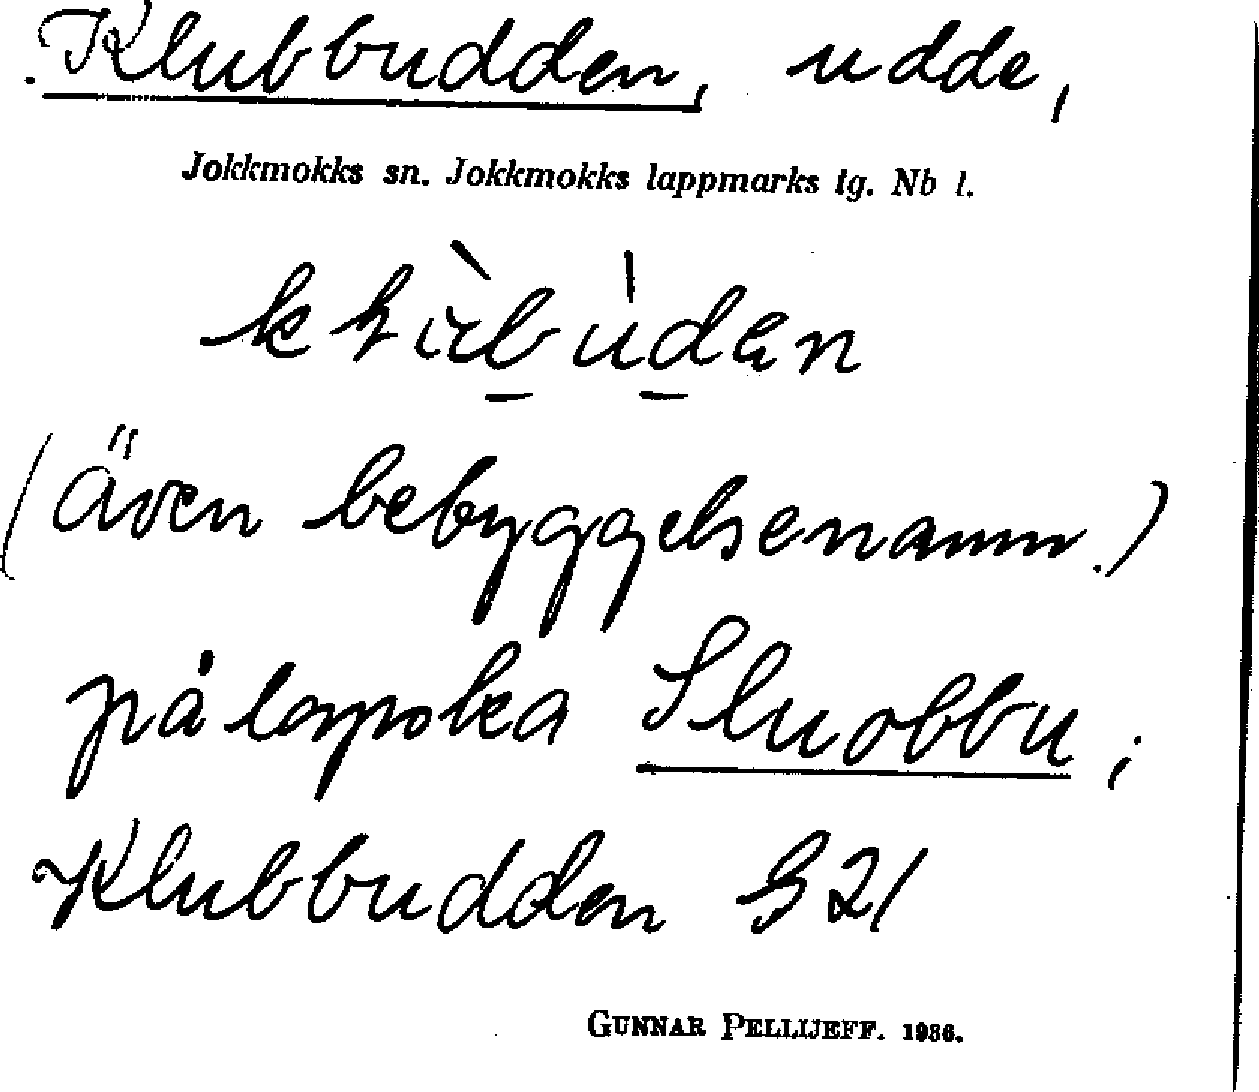 Klubbudden, udde,
Jokkmokks sn. Jokkmokks lappmarks tg. Nb l.
(även bebyggelsenamn.)
på lapska Sluobbu;
Klubbudden
GUNNAR PELLIJEFF. 1936.